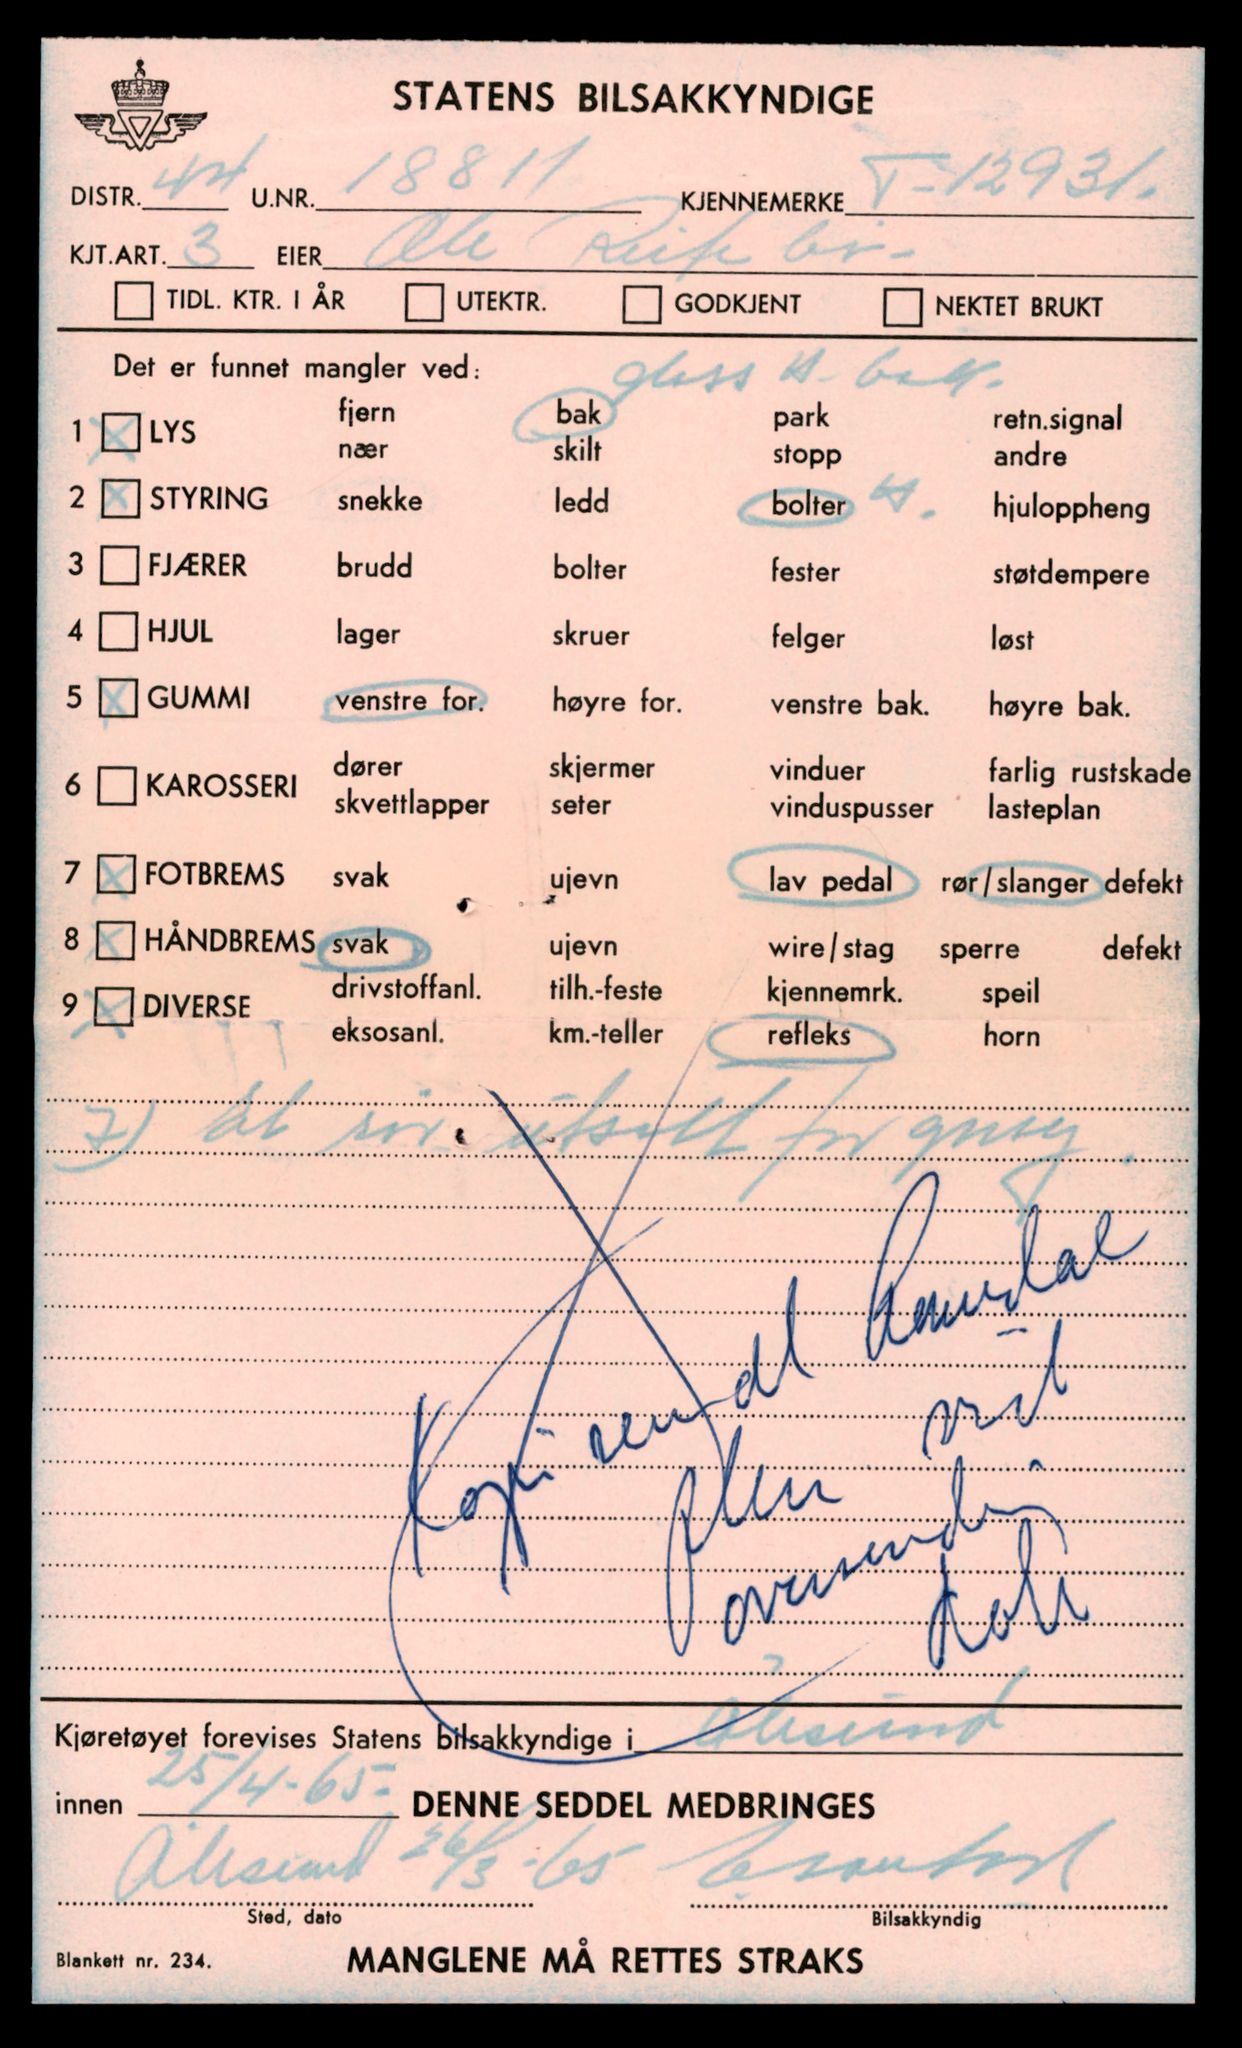 STATENS BILSAKKYNDIGE
DISTR. 44 U.NR. 18811 KJENNEMERKE T-12931.
KJT.ART. 3 EIER Ole
TIDL. KTR. I ÅR UTEKTR. GODKJENT NEKTET BRUKT
Det er funnet mangler ved: glass H. bak.
fjern bak park retn.signal
1 LYS
nær skilt stopp andre
2 STYRING snekke ledd bolter H. hjuloppheng
3 FJÆRER brudd bolter fester støtdempere
4 HJUL lager skruer felger løst
5 GUMMI venstre for. høyre for. venstre bak. høyre bak.
dører skjermer vinduer farlig rustskade
6 KAROSSERI
skvettlapper seter vinduspusser lasteplan
7 FOTBREMS svak ujevn lav pedal rør/slanger defekt
8 HÅNDBREMS svak ujevn wire/stag sperre defekt
drivstoffanl. tilh.-feste kjennemrk. speil
9 DIVERSE
eksosanl. km.-teller refleks horn
7) et rör utsatt for gnag.
Kopi sendt Romsdal
ved
Kjøretøyet forevises Statens bilsakkyndige i Ålesund
innen 25/4-65- DENNE SEDDEL MEDBRINGES
Ålesund 26/3-65
Sted, dato Bilsakkyndig
Blankett nr. 234. MANGLENE MÅ RETTES STRAKS